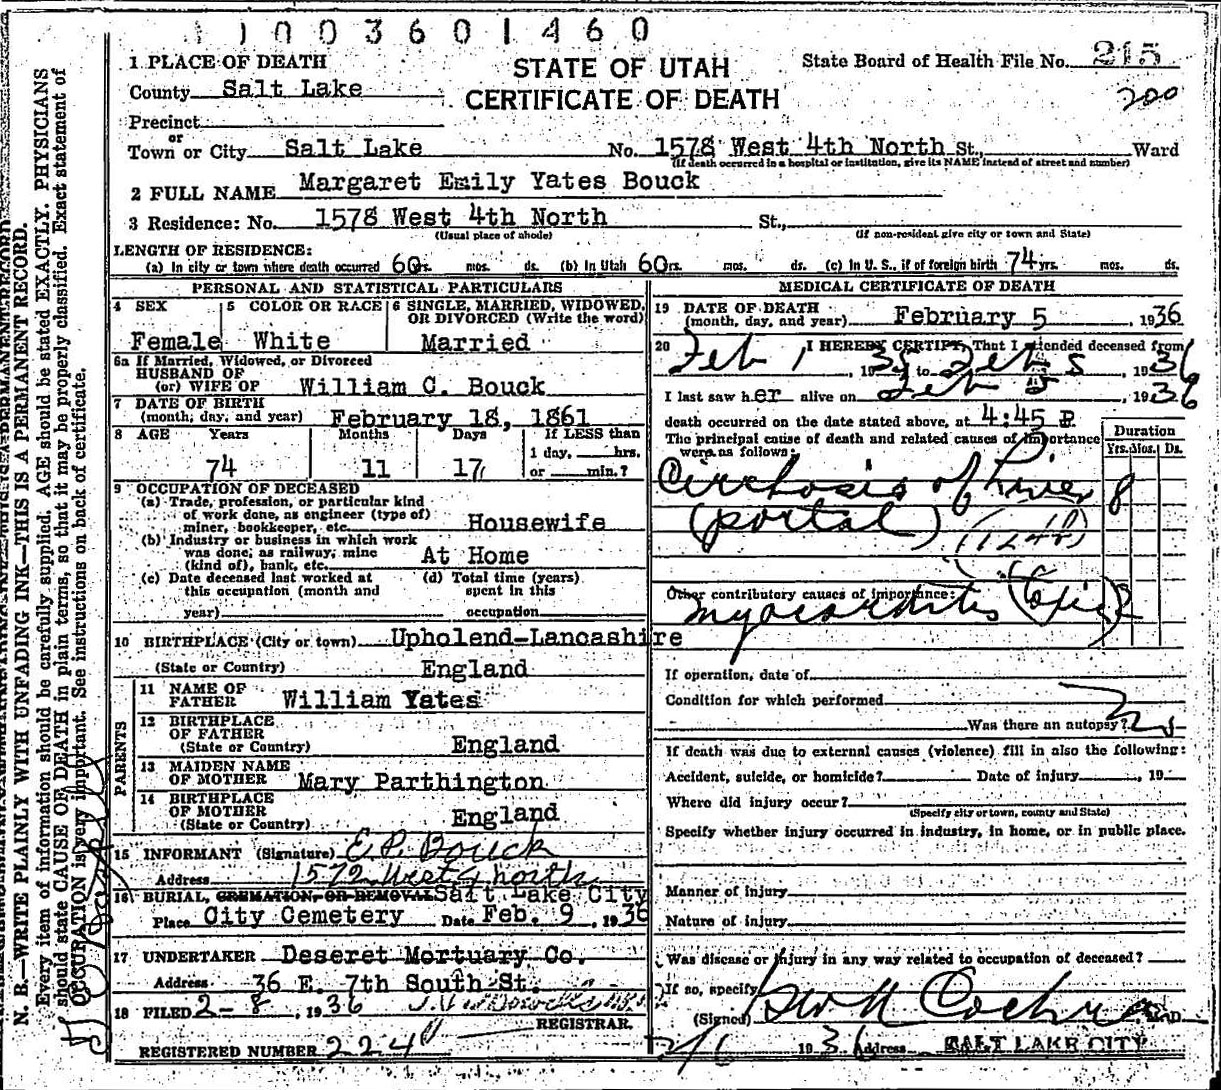 1003601460
1 PLACE OF DEATH
STATE OF UTAH
State Board of Health File No. 215
County Salt Lake
CERTIFICATE OF DEATH
200
Precinct
or
Town or City Salt Lake No. 1578 West 4th North St., Ward
(If death occurred in a hospital or institution, give its NAME instead of street and number)
2 FULL NAME Margaret Emily Yates Bouck
3 Residence: No. 1578 West 4th North St.,
(Usual place of abode) (If non-resident give city or town and State)
LENGTH OF RESIDENCE:
(a) In city or town where death occurred 60 yrs. mos. ds. (b) In Utah 60 yrs. mos. ds. (c) In U. S., if of foreign birth 74 yrs. mos. ds.
PERSONAL AND STATISTICAL PARTICULARS
4 SEX 5 COLOR OR RACE 6 SINGLE, MARRIED, WIDOWED, OR DIVORCED (Write the word)
Female White Married
6a If Married, Widowed, or Divorced
HUSBAND OF
(or) WIFE OF William C. Bouck
7 DATE OF BIRTH
(month, day, and year) February 18, 1861
8 AGE Years Months Days If LESS than
1 day, hrs.
74 11 17 or min.?
9 OCCUPATION OF DECEASED
(a) Trade, profession, or particular kind
of work done, as engineer (type of)
miner, bookkeeper, etc. Housewife
(b) Industry or business in which work
was done; as railway, mine
(kind of), bank, etc. At Home
(c) Date deceased last worked at this occupation (month and year)
(d) Total time (years) spent in this occupation
10 BIRTHPLACE (City or town) Upholend-Lancashire
(State or Country) England
PARENTS
11 NAME OF
FATHER William Yates
12 BIRTHPLACE
OF FATHER
(State or Country) England
13 MAIDEN NAME
OF MOTHER Mary Parthington
14 BIRTHPLACE
OF MOTHER
(State or Country) England
15 INFORMANT (Signature) E. P. Bouck
Address 1572 West 4 North
16 BURIAL, CREMATION, OR REMOVAL Salt Lake City
Place City Cemetery Date Feb. 9, 1936
17 UNDERTAKER Deseret Mortuary Co.
Address 36 E. 7th South St.
18 FILED 2-8, 1936
REGISTRAR.
REGISTERED NUMBER 224
MEDICAL CERTIFICATE OF DEATH
19 DATE OF DEATH
(month, day, and year) February 5, 1936
20 I HEREBY CERTIFY, That I attended deceased from
Feb 1, 1935 to Feb 5, 1936
I last saw her alive on Feb 5, 1936
death occurred on the date stated above, at 4:45 P.
The principal cause of death and related causes of importance
were as follows:
Duration
Yrs. Mos. Ds.
Cirrhosis of Liver 8
(portal)
(124b)
Other contributory causes of importance:
Myocarditis
If operation, date of
Condition for which performed
Was there an autopsy?
If death was due to external causes (violence) fill in also the following:
Accident, suicide, or homicide? Date of injury , 19
Where did injury occur?
(Specify city or town, county and State)
Specify whether injury occurred in industry, in home, or in public place.
Manner of injury
Nature of injury
Was disease or injury in any way related to occupation of deceased?
If so, specify
(Signed) M. D.
2/6 1936 Address SALT LAKE CITY
N. B.—WRITE PLAINLY WITH UNFADING INK—THIS IS A PERMANENT RECORD.
Every item of information should be carefully supplied. AGE should be stated EXACTLY. PHYSICIANS
should state CAUSE OF DEATH in plain terms, so that it may be properly classified. Exact statement of
OCCUPATION is very important. See instructions on back of certificate.